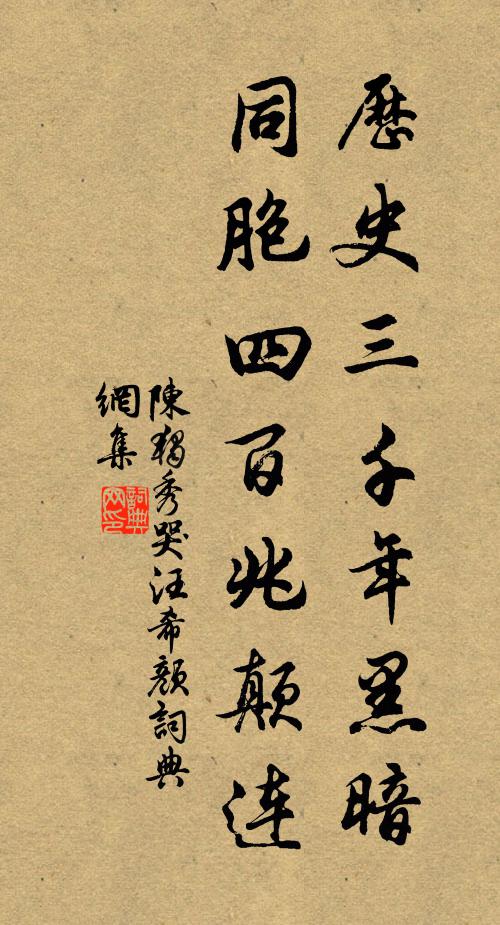 歷史三千年黑暗
同胞四百兆顛连
陳獨秀哭汪希顏詞典
網集
詞典网印